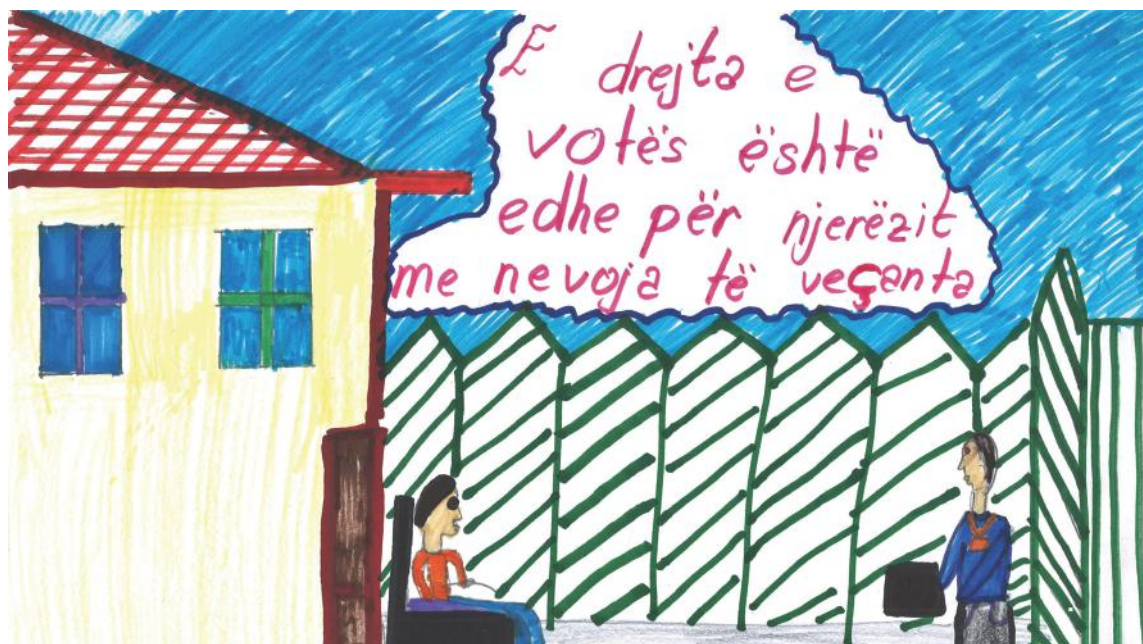 E drejta e
votës është
edhe për njerëzit
me nevoja të veçanta